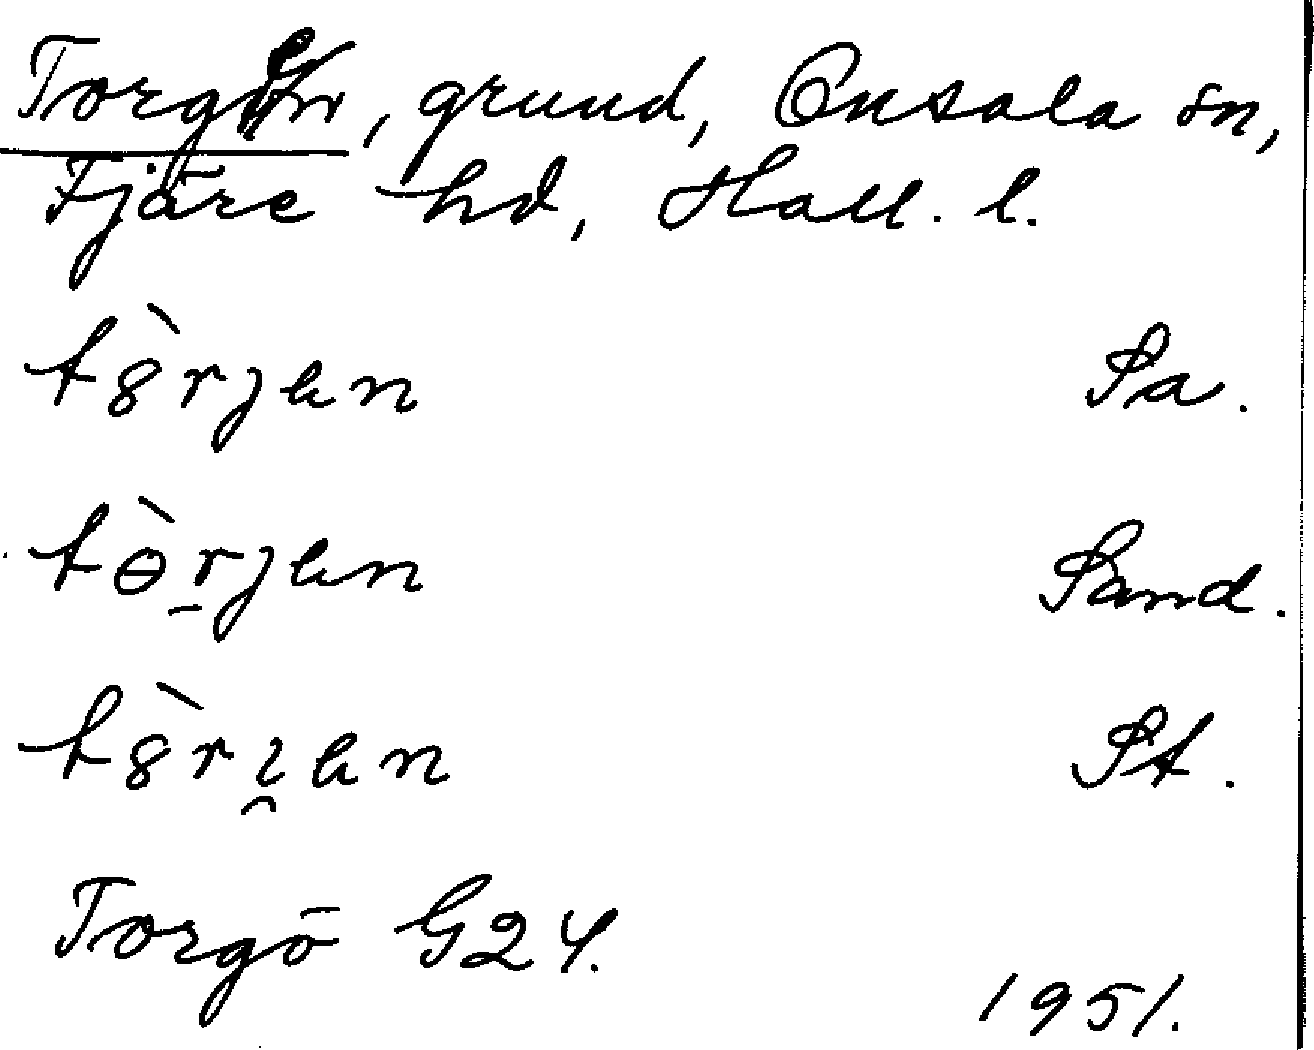 Torgen, grund, Onsala sn,
Fjäre hd, Hall. l.
tȣ̀rjen Sa.
tɵ̀r̠jen Sand.
tȣ̀ri̯en St.
Torgö G24.
1951.